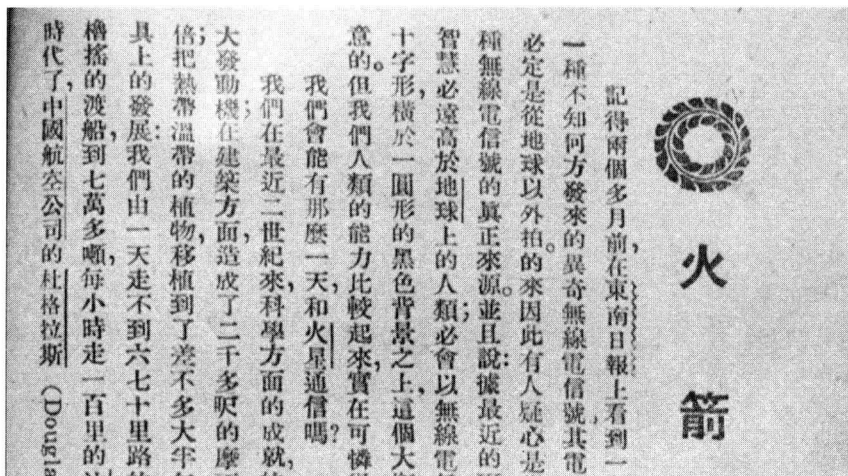 火箭
記得兩個多月前,在東南日報上看到一
一種不知何方發來的異奇無線電信號,其電
必定是從地球以外拍的來。因此有人疑心是
種無線電信號的眞正來源。並且說:據最近的
智慧必遠高於地球上的人類;必會以無線電
十字形,橫於一圓形的黑色背景之上,這個大
意的。但我們人類的能力比較起來,實在可憐
我們會能有那麼一天,和火星通信嗎?
我們在最近二世紀來,科學方面的成就,
大發動機;在建築方面,造成了二千多呎的摩
倍;把熱帶溫帶的植物,移植到了差不多大半
具上的發展:我們由一天走不到六七十里路的
櫓搖的渡船,到七萬多噸,每小時走一百里的
時代了,中國航空公司的杜格拉斯(Dougla